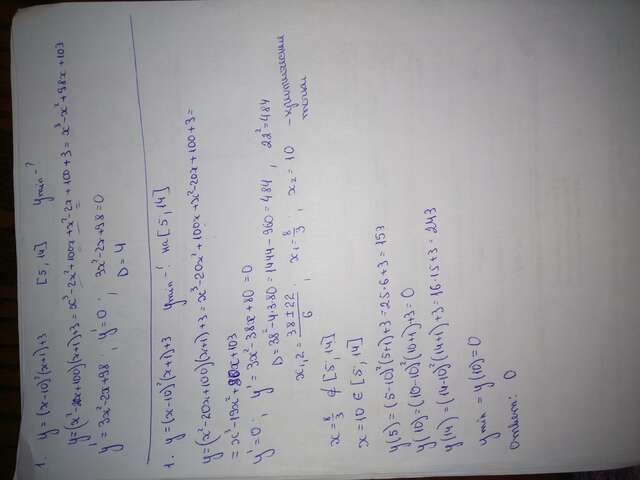 1. y=(x-10)²(x+1)+3 [5; 14] ymin-?
y=(x²-2x+100)(x+1)+3=x³-2x²+100x+x²-2x+100+3=x³-x²+98x+103
y'=3x²-2x+98; y'=0; 3x²-2x+98=0
D=4
1. y=(x-10)²(x+1)+3 ymin-? на [5; 14]
y=(x²-20x+100)(x+1)+3=x³-20x²+100x+x²-20x+100+3=
=x³-19x²+80x+103
y'=0; y'=3x²-38x+80=0
D=38²-4·3·80=1444-960=484, 22²=484
x₁,₂=38±22/6; x₁=8/3; x₂=10 -критические
точки
x=8/3 ∉ [5; 14]
x=10 ∈ [5; 14]
y(5)=(5-10)²(5+1)+3=25·6+3=153
y(10)=(10-10)²(10+1)+3=0
y(14)=(14-10)²(14+1)+3=16·15+3=243
ymin=y(10)=0
Ответ: 0